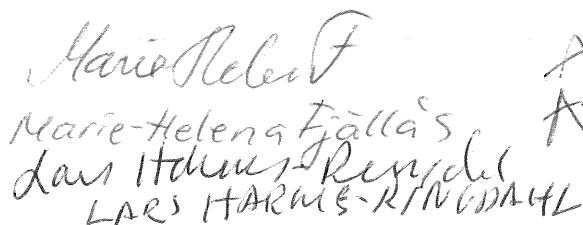 Marie Helen F
Marie-Helena Fjällås A
Lars Harms-Ringdahl
LARS HARMS-RINGDAHL